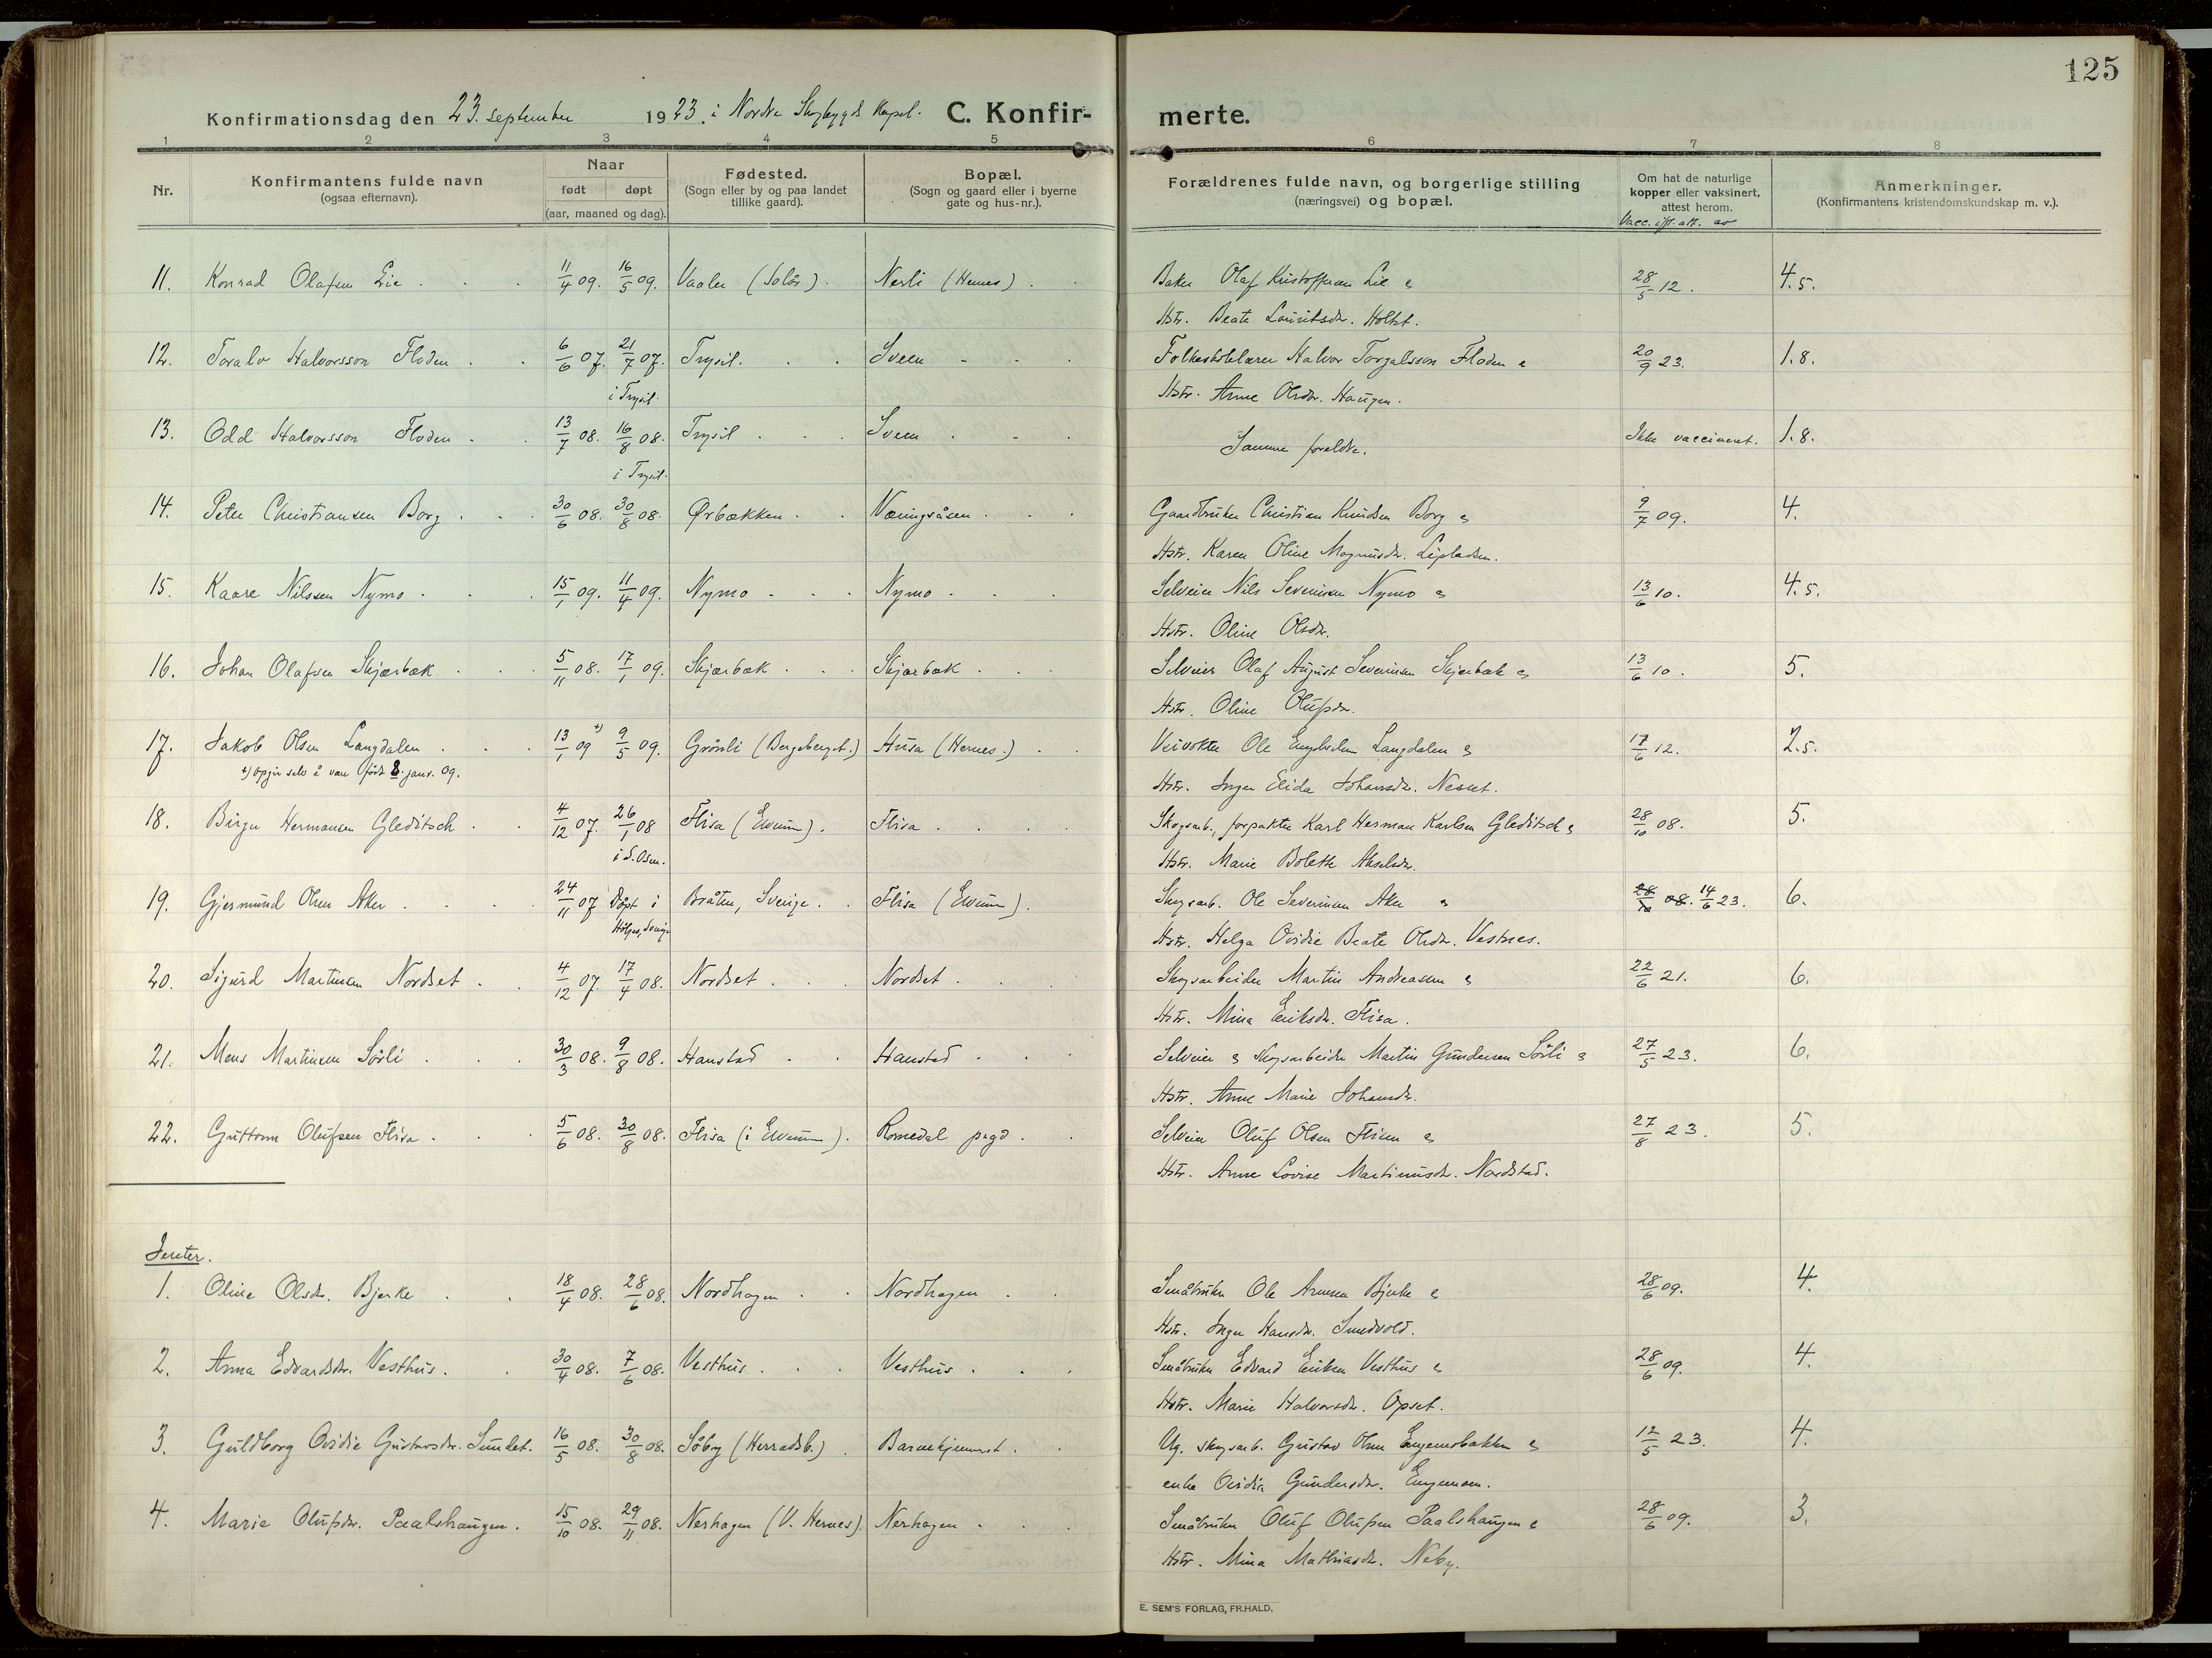 125
Konfirmationsdag den 23. september 1923. i Nordre Skogbygds Kapel. C. Konfir- merte.
1 2 3 4 5 6 7 8
Nr. Konfirmantens fulde navn (ogsaa efternavn). Naar født døpt (aar, maaned og dag). Fødested. (Sogn eller by og paa landet tillike gaard). Bopæl. (Sogn og gaard eller i byerne gate og hus-nr.). Forældrenes fulde navn, og borgerlige stilling (næringsvei) og bopæl. Om hat de naturlige kopper eller vaksinert, attest herom. Anmerkninger. (Konfirmantens kristendomskundskap m. v.).
Vacc. ifl. att. av
11. Konrad Olafsen Lie 11/4 09. 16/5 09. Vaaler (Solør). Nerli (Hernes) Baker Olaf Kristoffersen Lie & 28/5 12. 4.5.
Hstr. Beate Lauritsdr. Holtet.
12. Toralv Halvorsson Floden 6/6 07. 21/7 07. Trysil. Sveen Folkeskolelærer Halvor Torgalsson Floden & 20/9 23. 1.8.
i Trysil. Hstr. Anne Olsdr. Haugen.
13. Odd Halvorsson Floden 13/7 08. 16/8 08. Trysil Sveen Samme foreldre. Ikke vaccineret. 1.8.
i Trysil.
14. Peter Christiansen Borg 30/6 08. 30/8 08. Ørbækken Væringsåsen Gaardbruker Christian Knudsen Borg & 9/7 09. 4.
Hstr. Karen Oline Magnusdr.
15. Kaare Nilssen Nymo 15/1 09. 11/4 09. Nymo Nymo Selveier Nils Severinsen Nymo & 13/6 10. 4.5.
Hstr. Oline Olsdr.
16. Johan Olafsen Skjærbæk 5/11 08. 17/1 09. Skjærbæk Skjærbæk Selveier Olaf August Severinsen Skjærbæk & 13/6 10. 5.
Hstr. Oline Olufsdr.
17. Jakob Olsen Langdalen 13/1 09 +) 9/5 09. Grønli (Bergeberget.) Husa (Hernes.) Veivokter Ole Langdalen & 17/6 12. 2.5.
+) opgir selv å være født 8. janr. 09. Hstr. Inger Elida Johansdr. Nesset.
18. Birger Hermansen Gleditsch 4/12 07. 26/1 08 Flisa (Elverum). Flisa Skogsarb., forpakter Karl Herman Karlsen Gleditsch & 28/10 08. 5.
i S. Osen. Hstr. Marie Bolette Akselsdr.
19. Gjermund Olsen Aker 24/11 07 Døpt i Bråten, Sverige. Flisa (Elverum). Skogsarb. Ole Severinsen Aker & 28/10 08. 14/6 23. 6.
Höljes, Sverige Hstr. Helga Ovidie Beate Olsdr. Vestnes.
20. Sigurd Martinsen Nordset 4/12 07. 17/4 08. Nordset Nordset Skogsarbeider Martin Andreassen & 22/6 21. 6.
Hstr. Mina Eriksdr. Flisa.
21. Mons Martinsen Sørli 30/3 08. 9/8 08. Hanstad Hanstad Selveier & skogsarbeider Martin Gundersen Sørli & 27/5 23. 6.
Hstr. Anne Marie Johansdr.
22. Guttorm Olufsen Flisa 5/6 08. 30/8 08. Flisa (i Elverum). Romedal prgd. Selveier Oluf Olsen Flisen & 27/8 23. 5.
Hstr. Anne Lovise Martinusdr. Nordstad.
Jenter.
1. Oline Olsdr. Bjerke 18/4 08. 28/6 08. Nordhagen Nordhagen Småbruker Ole Arnesen Bjerke & 28/6 09. 4.
Hstr. Inger Hansdr. Smedvold.
2. Anna Edvardsdr. Vesthus. 30/4 08. 7/6 08. Vesthus Vesthus Småbruker Edvard Eriksen Vesthus & 28/6 09. 4.
Hstr. Marie Halvorsdr. Opset.
3. Guldborg Ovidie Gustavsdr. Sundet. 16/5 08. 30/8 08. Søby (Herradsb.) Barnehjemmet Ug. skogsarb. Gustav Olsen Engemobakken & 12/5 23. 4.
enke Ovidia Gundersdr. Engemoen.
4. Marie Olufsdr. Paalshaugen. 15/10 08. 29/11 08. Nerhagen (V. Hernes). Nerhagen Småbruker Oluf Olufsen Paalshaugen & 28/6 09. 3.
Hstr. Mina Mathiasdr. Neby.
E. SEM'S FORLAG, FR.HALD.